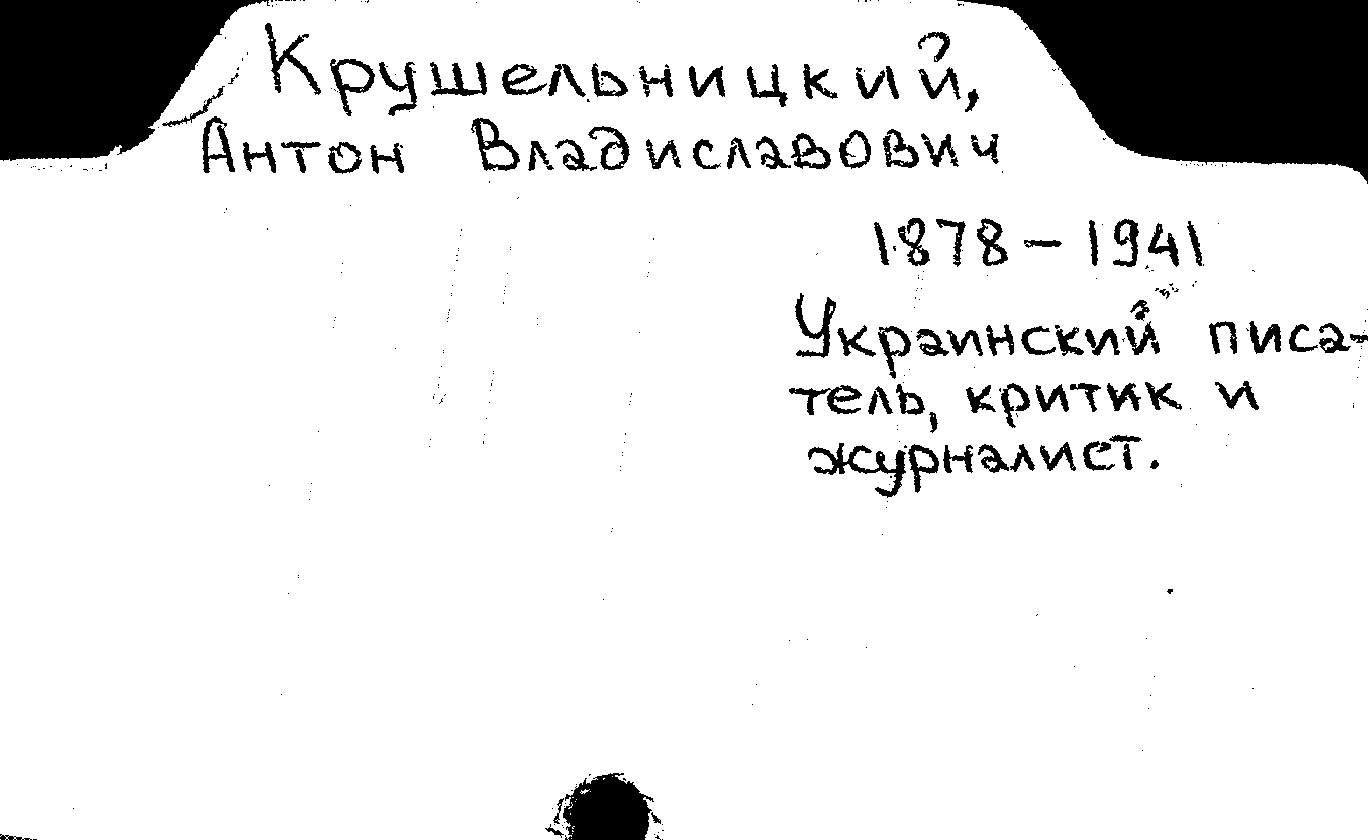 Крушельницкий,
Антон Владиславович
1878 – 1941
Украинский писа-
тель, критик и
журналист.